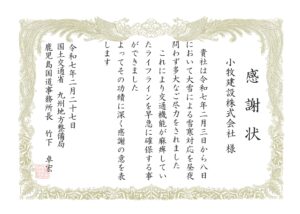 感謝状
小牧建設株式会社 様
貴社は令和七年二月三日から八日
において大雪による雪寒対応を昼夜
問わず多大なご尽力をされました
これにより交通機能が麻痺してい
たライフラインを早急に確保する事
ができました
よってその功績に深く感謝の意を表
します
令和七年二月二十七日
国土交通省 九州地方整備局
鹿児島国道事務所長 竹下 卓宏